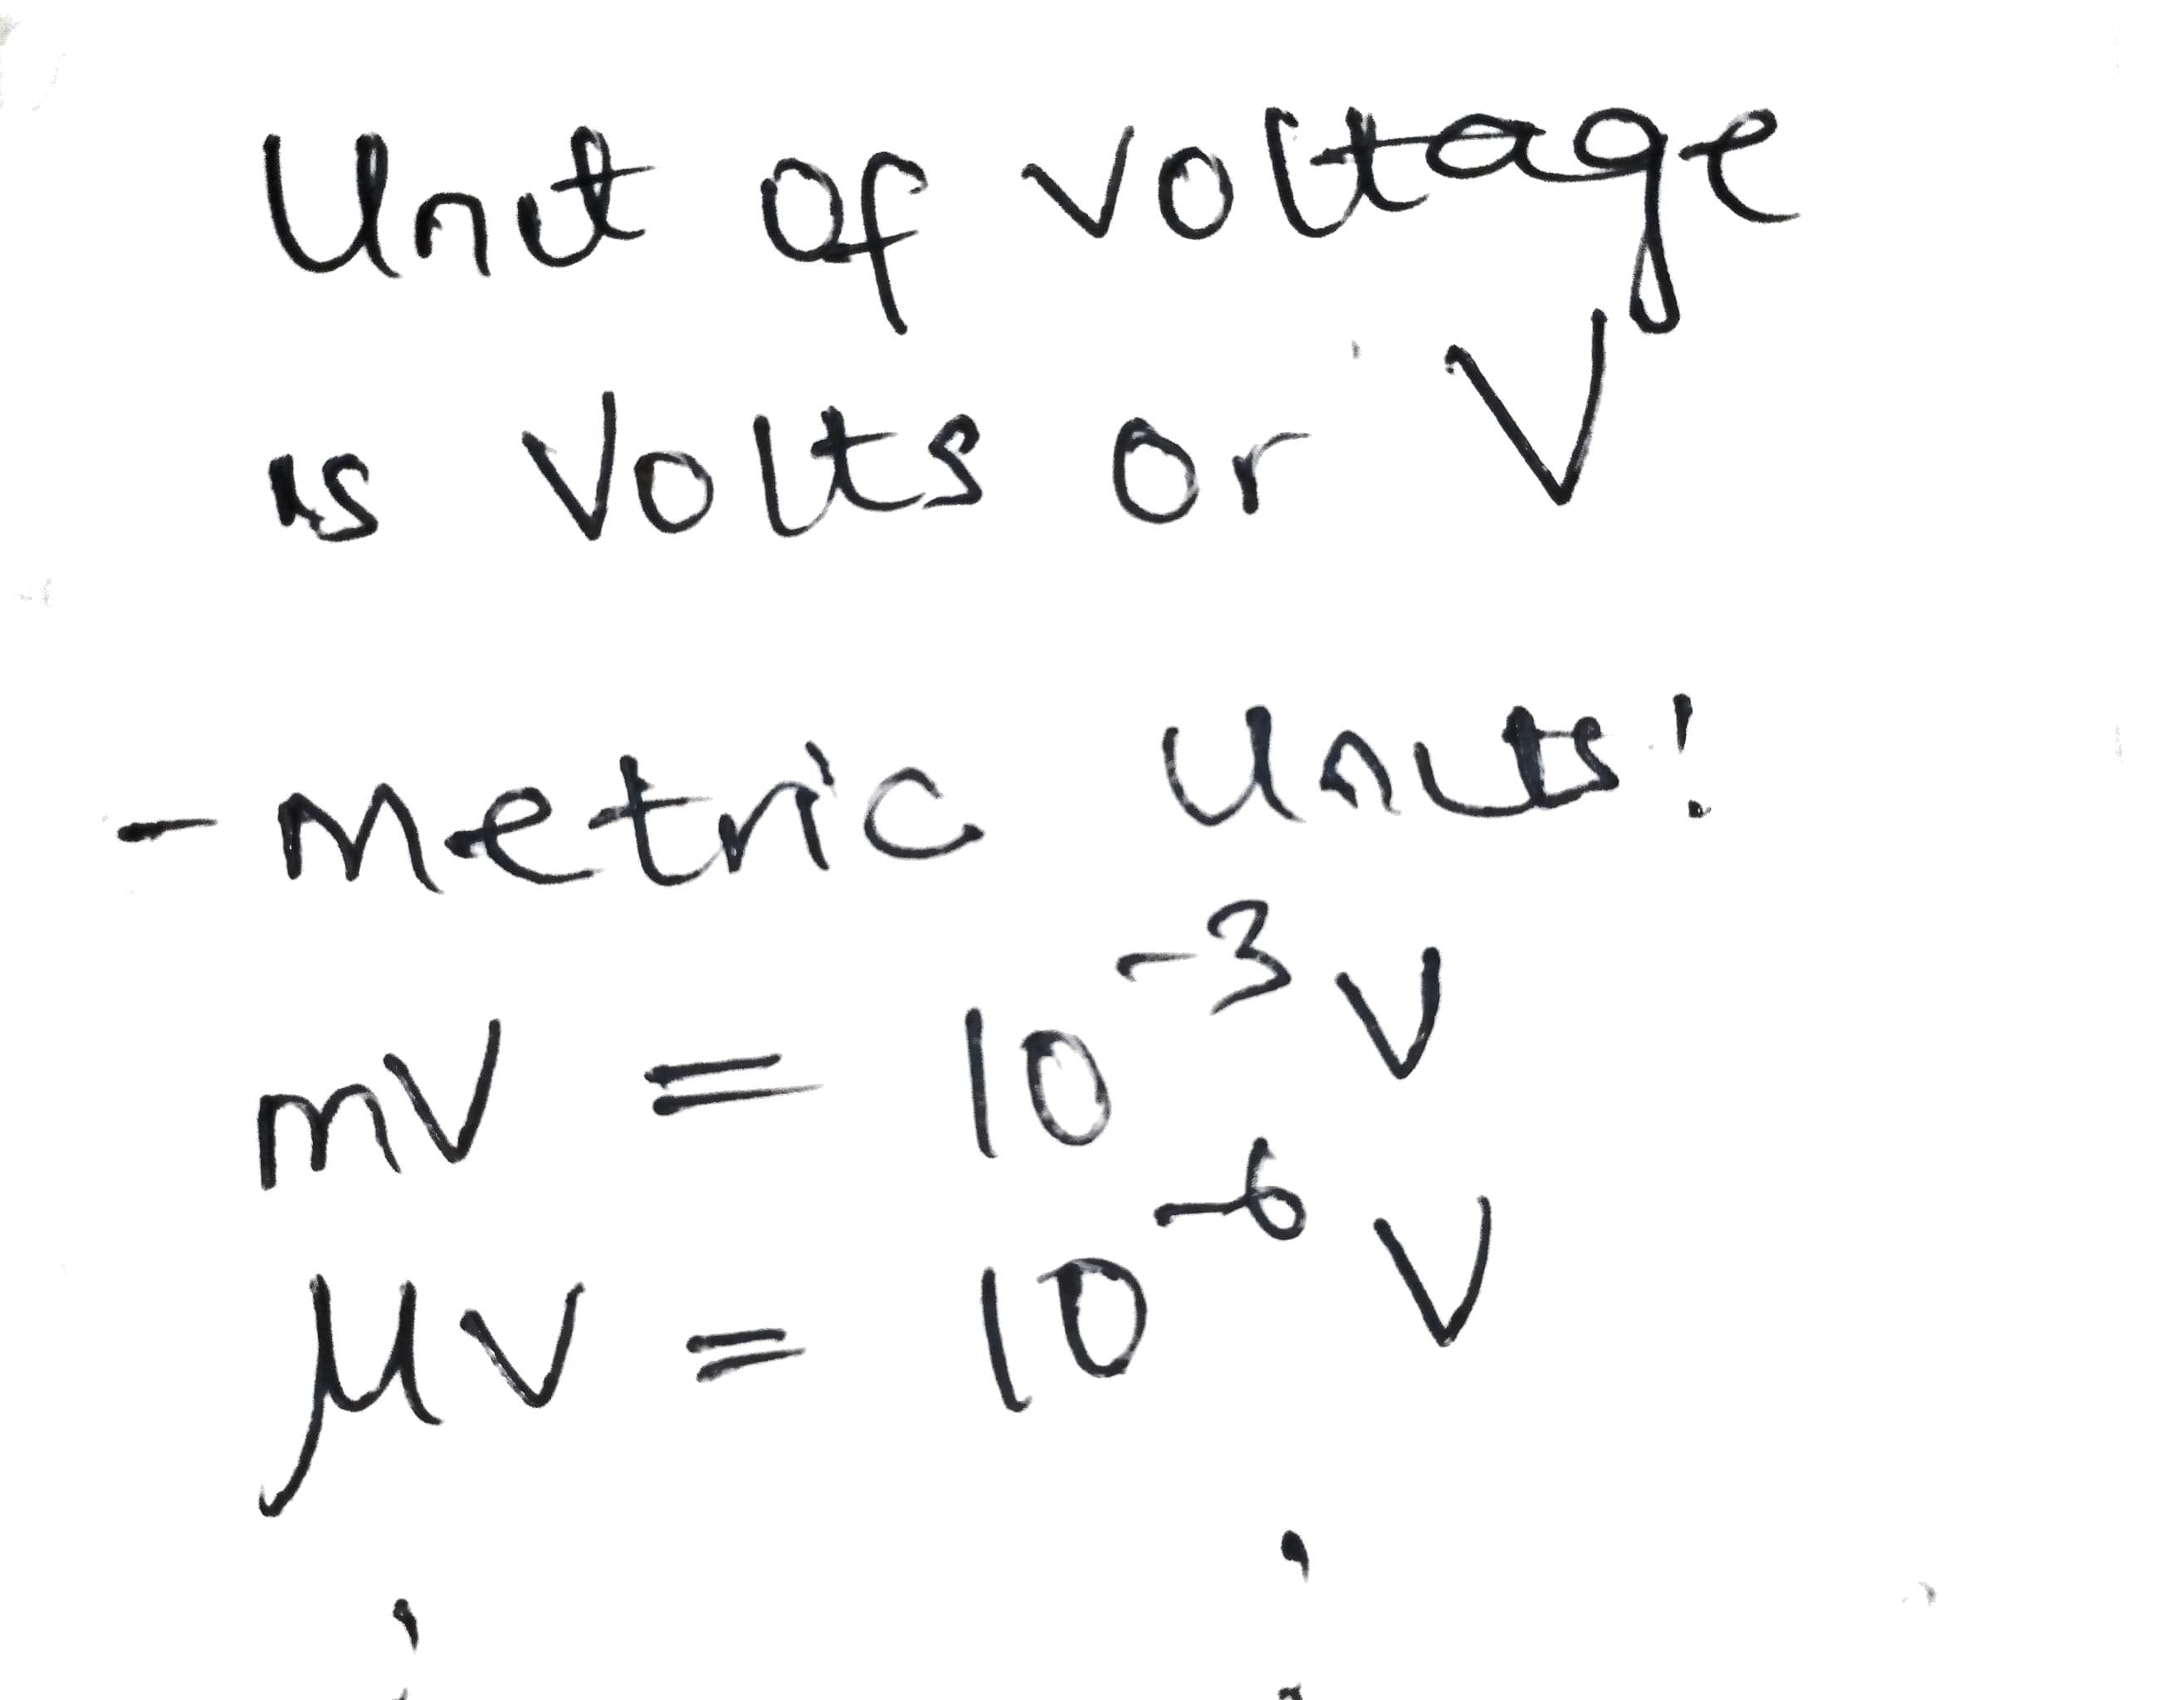 Unit of voltage
is Volts or V
- Metric Units!
mV = 10⁻³ V
μV = 10⁻⁶ V